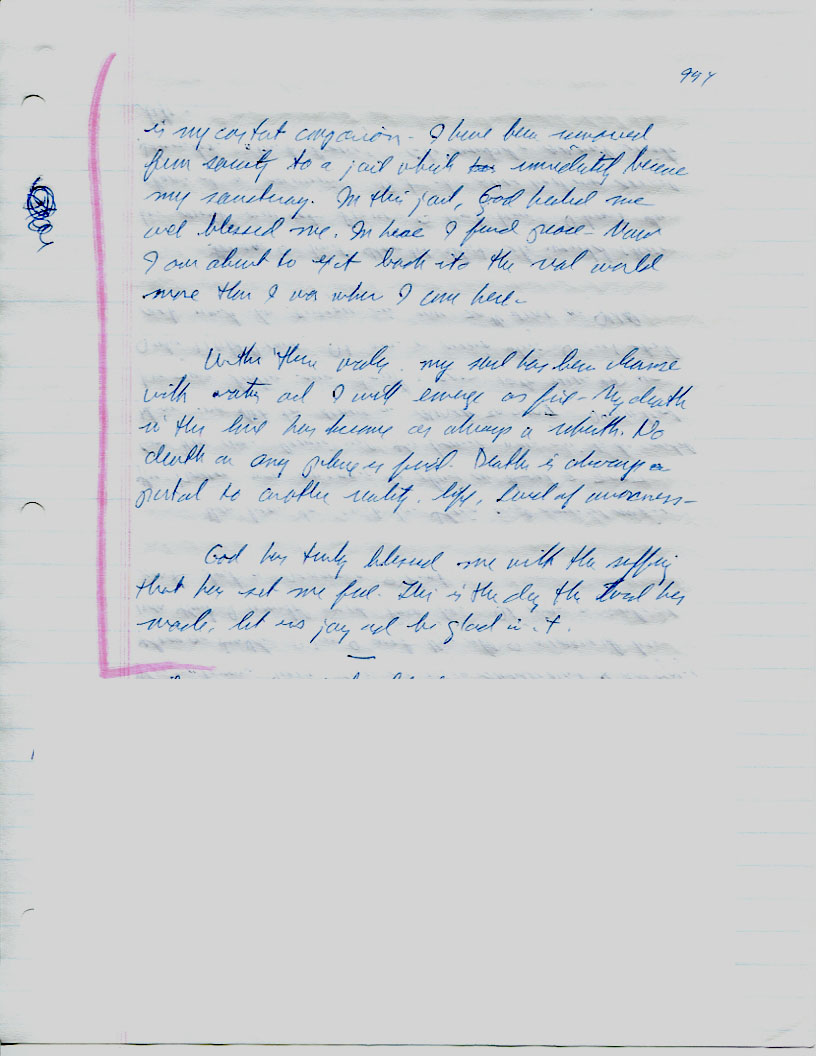 994
is my constant companion - I have been removed
from society to a jail which has immediately became
my sanctuary. In this jail, God healed me
and blessed me. In here I found peace - Now
I am about to exit back into the real world
more than I was when I came here -
Within these walls, my soul has been cleanse
with water and I will emerge as fire - My death
in this has become as always a rebirth. No
death on any plane is final. Death is always a
portal to another reality, life, level of awareness -
God has truly blessed me with the suffering
that has set me free. This is the day the Lord has
made, let us joy and be glad in it.